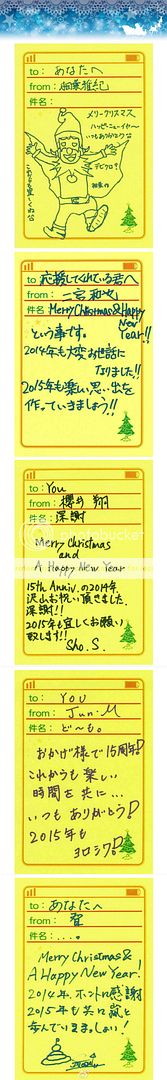 to: あなたへ
from: 相葉雅紀
件名:
メリークリスマス
ハッピーニューイヤー
いつもありがとう
to: 応援してくれている君へ
from: 二宮和也
件名: Merry Christmas & Happy
New Year!!
という事です。
2014年も大変お世話に
なりました!!
2015年も楽しい思い出を
作っていきましょう!!
to: You
from: 櫻井 翔
件名: 深謝
Merry Christmas
and
A Happy New Year
15th Anniv.の2014年
沢山お祝い頂きました
深謝!!
2015年も宜しくお願い
致します!!
Sho. S.
to: YOU
from: Jun. M
件名: ど〜も。
おかげ様で15周年!
これからも楽しい
時間を共に...
いつもありがとう!
2015年も
ヨロシク!
to: あなたへ
from: 智
件名: ....。
Merry Christmas &
A Happy New Year!
2014年、ホントに感謝
2015年も共に嵐と
歩んでいきましょい!